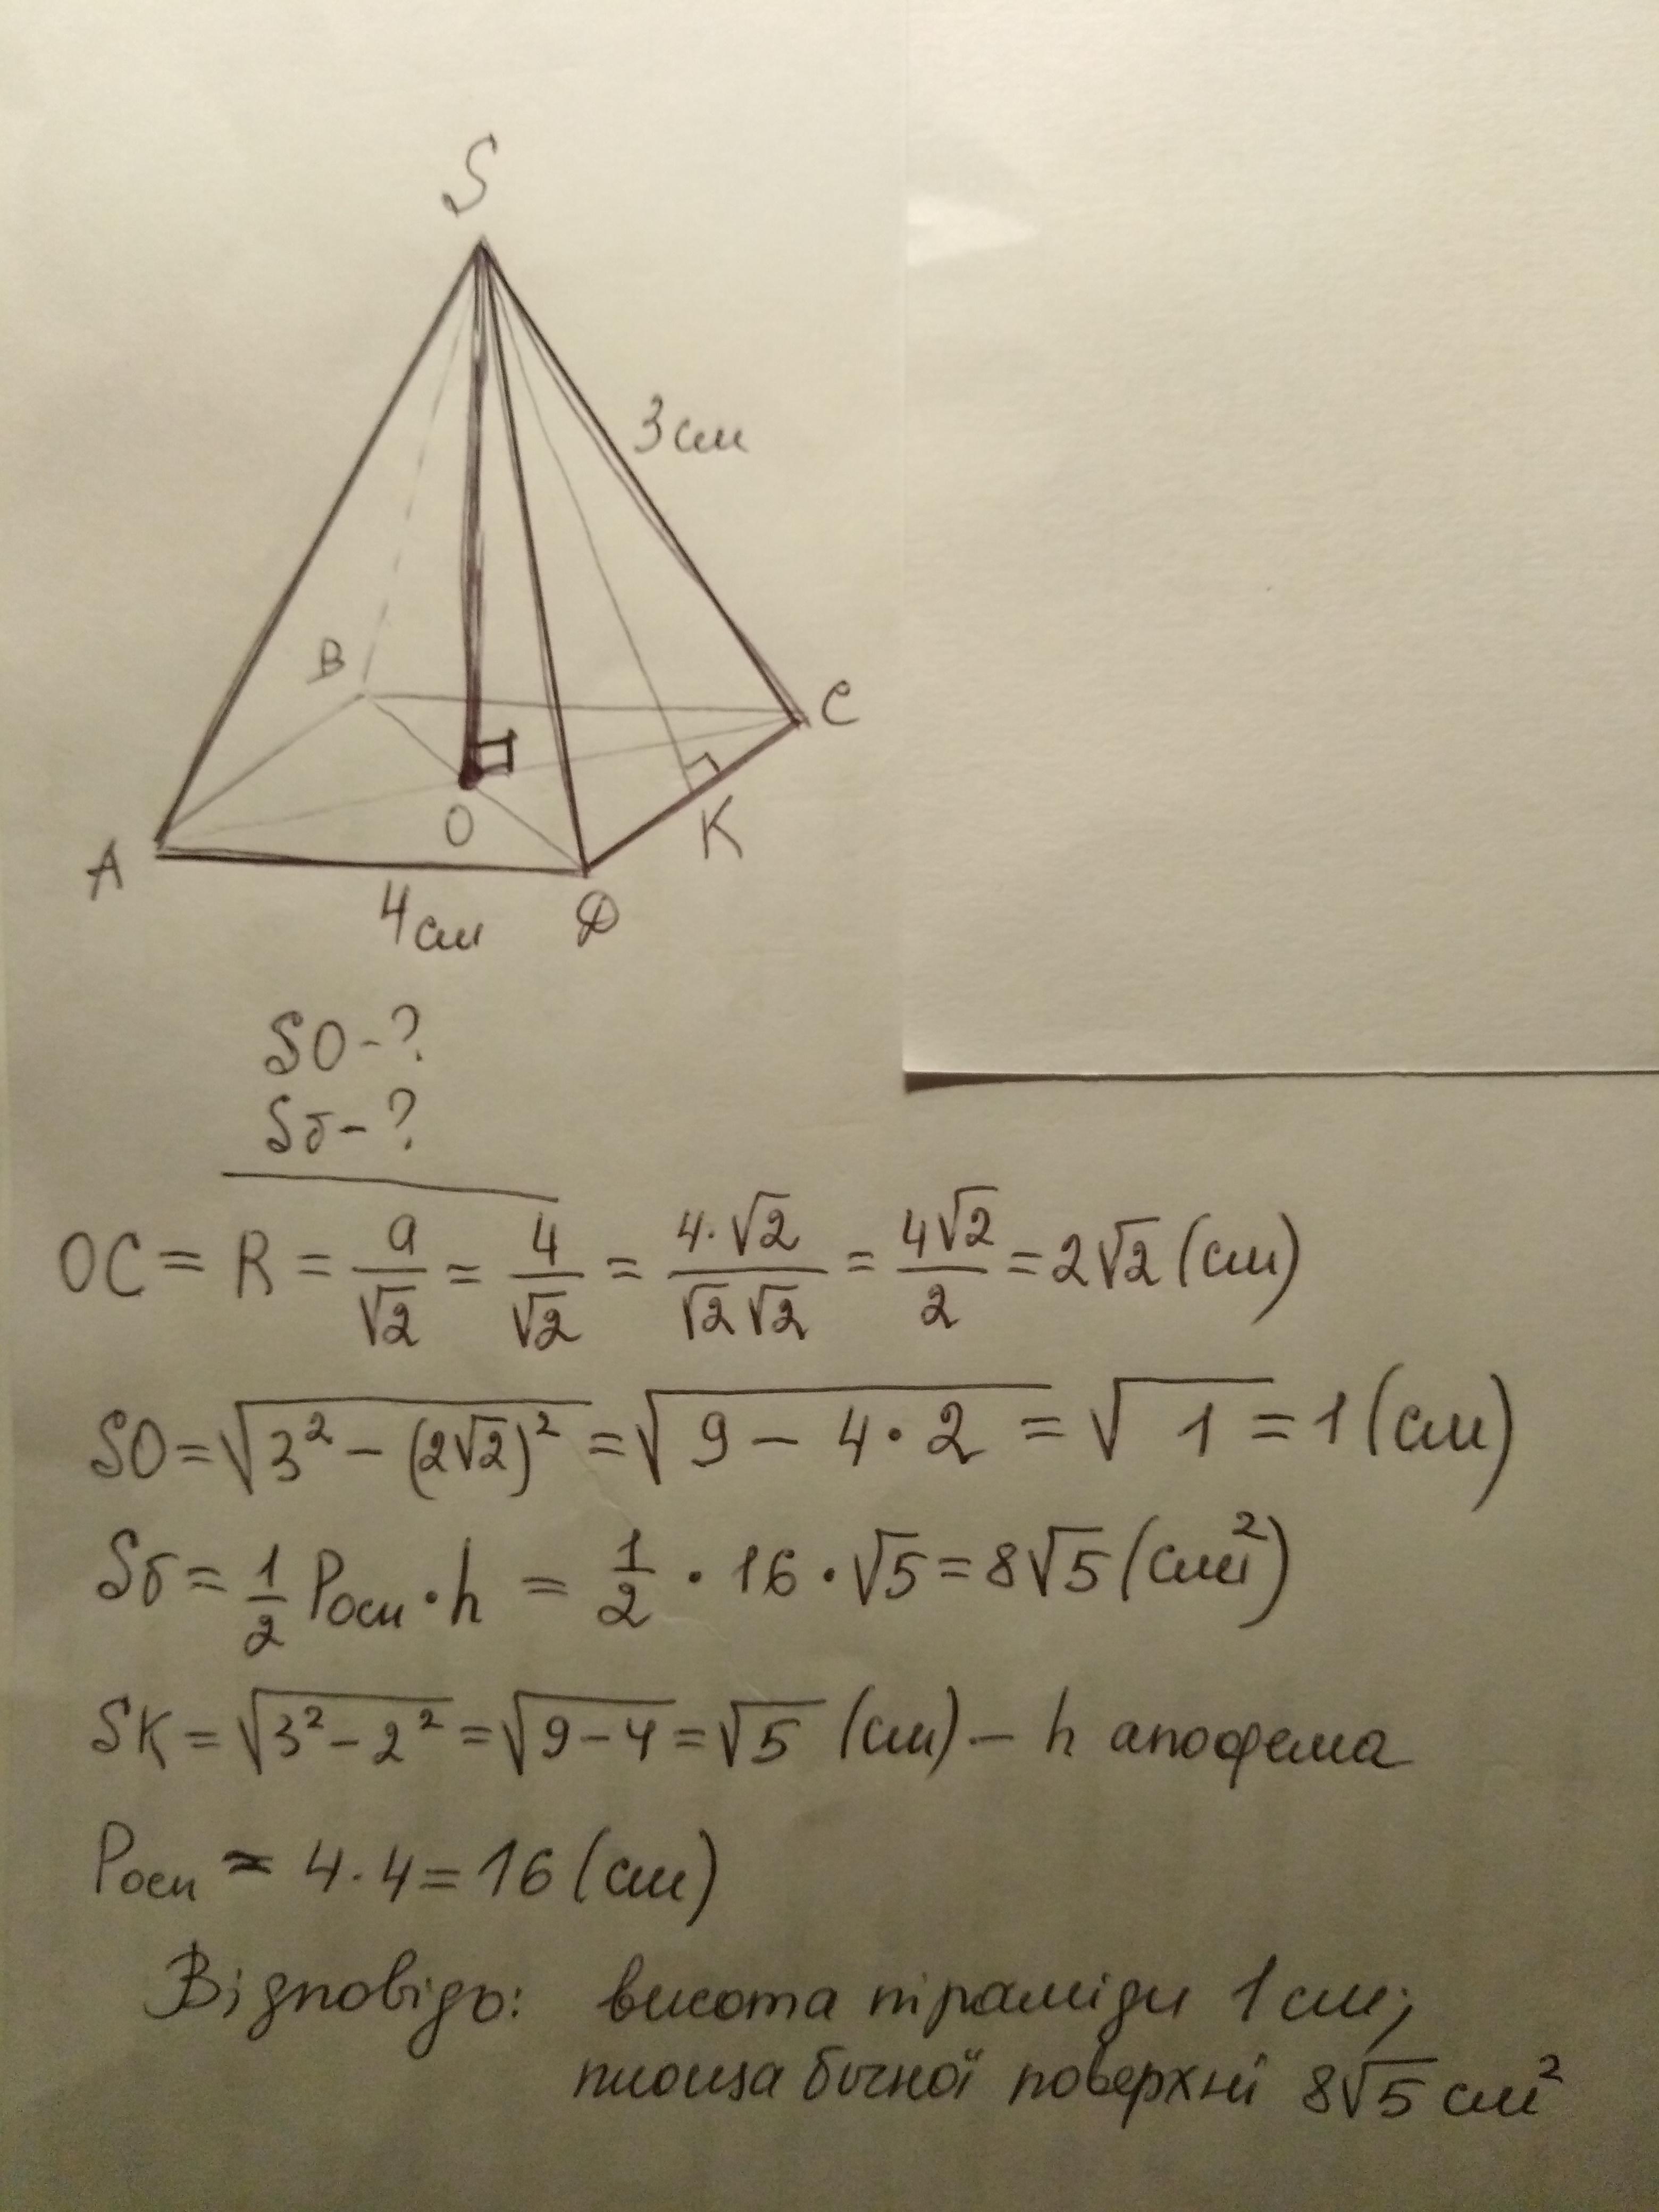 S
3см
B
C
O
K
A
4см
D
SO-?
Sб-?
OC = R = a/√2 = 4/√2 = 4·√2/√2√2 = 4√2/2 = 2√2 (см)
SO = √3² − (2√2)² = √9 − 4·2 = √1 = 1 (см)
Sб = 1/2 Pосн · h = 1/2 · 16 · √5 = 8√5 (см²)
SK = √3² − 2² = √9 − 4 = √5 (см) − h апофема
Pосн = 4·4 = 16 (см)
Відповідь: висота піраміди 1 см;
площа бічної поверхні 8√5 см²